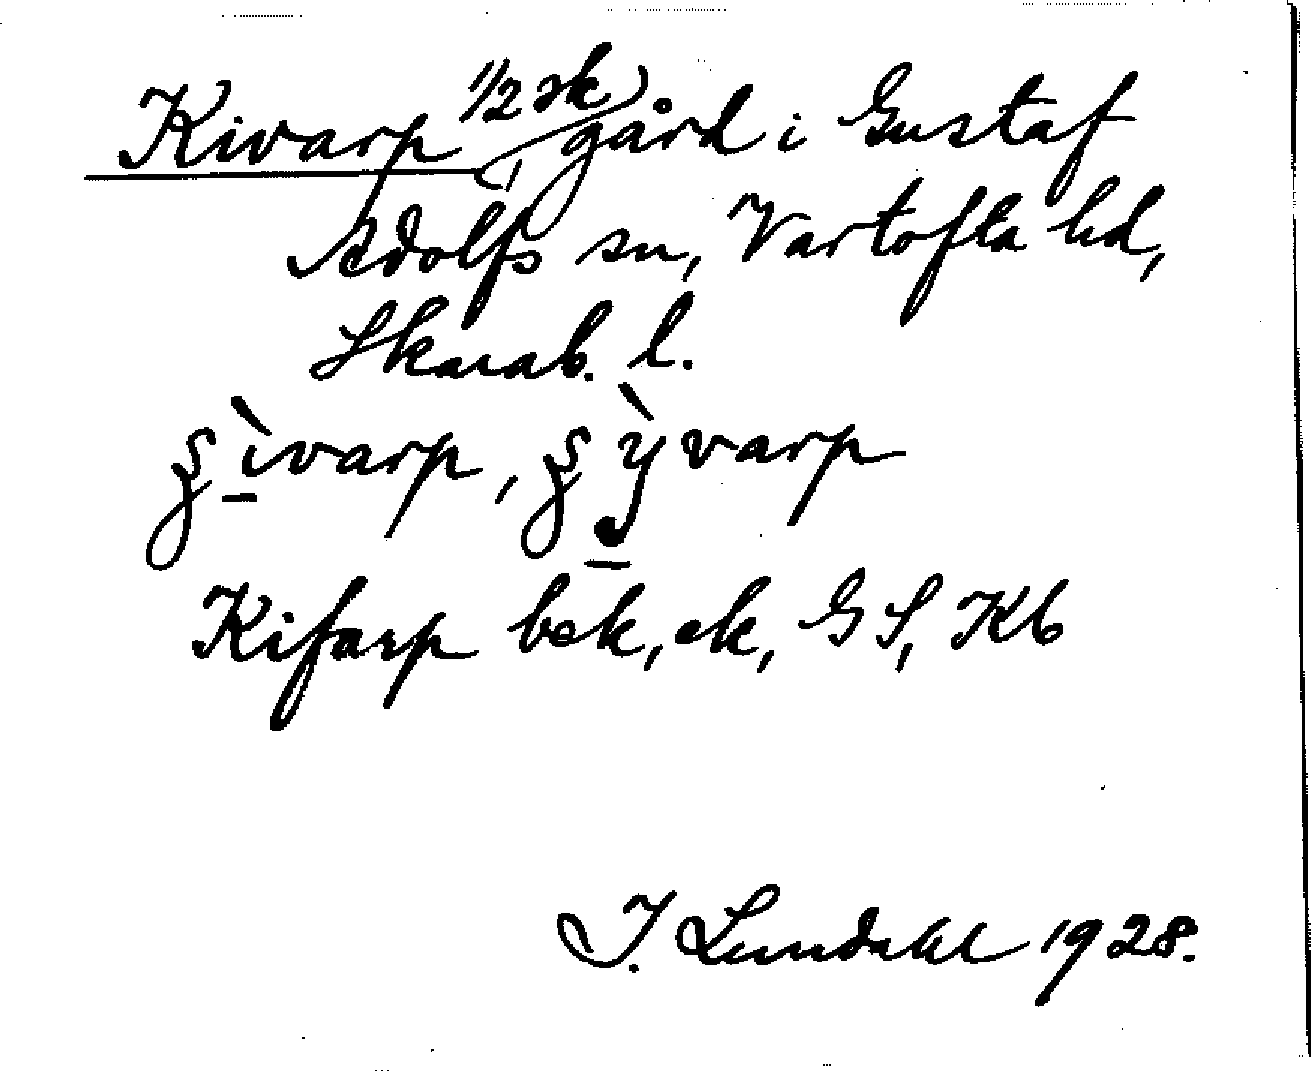 Kivarp 1/2 sk gård i Gustaf
Adolfs sn, Vartofta hd,
Skarab. l.
ìvarp, ỳvarp
Kifarp bek, ek, GS, Kb
I. Lundahl 1928.